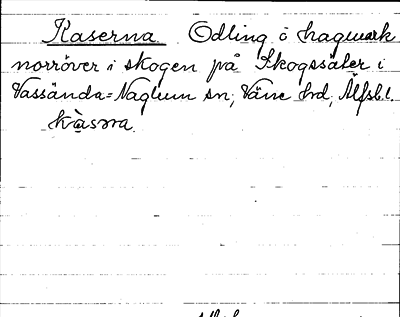 Kaserna Odling o hagmark
norröver i skogen på Skogssäter i
Vassända=Naglum sn, Väne hd, Älfsb.l.
kàsṇa.